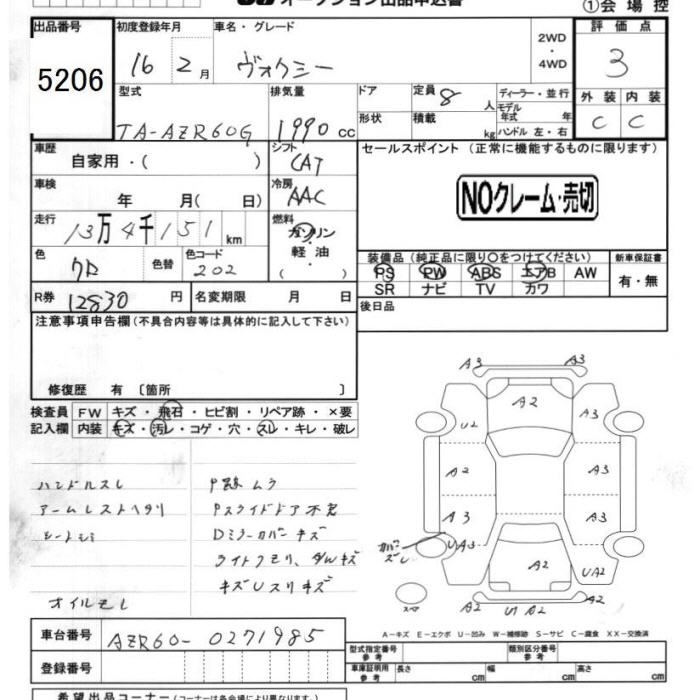 オークション出品申込書
①会場控
出品番号 初度登録年月 車名・グレード 評価点
5206 16 2月 ヴォクシー 2WD・4WD 3
型式 排気量 ドア 定員 8 人 ディーラー・並行 外装 内装
TA-AZR60G 1990cc 形状 積載 kg モデル年式 年 C C
ハンドル 左・右
車歴 自家用・( ) シフト CAT セールスポイント(正常に機能するものに限ります)
車検 年 月( 日) 冷房 AAC NOクレーム・売切
走行 13万4千151km 燃料 ガソリン・軽油・( )
色 クロ 色替 色コード 202 装備品(純正品に限り○をつけてください) 新車保証書
PS PW ABS エアB AW 有・無
SR ナビ TV カワ
R券 12830円 名変期限 月 日 後日品
注意事項申告欄(不具合内容等は具体的に記入して下さい)
修復歴 有〔箇所 〕
検査員 FW キズ・飛石・ヒビ割・リペア跡・×要
記入欄 内装 キズ・汚レ・コゲ・穴・スレ・キレ・破レ
ハンドルスレ P跡ムラ
アームレストヘタリ Pスライドドア不良
シートシミ Dミラーカバーキズ
ライトクモリ、ダルキズ
キズUスリキズ
オイルモレ
A3 A3
A2
U2 A3
A2 A3
A3 A3
カバーズレ UA3
A2 UA2
スペア U1 A2
A-キズ E-エクボ U-凹み W-補修跡 S-サビ C-腐食 XX-交換済
車台番号 AZR60-0271985 型式指定番号 参考 類別区分番号 参考
登録番号 車庫証明用 参考 長さ cm 幅 cm 高さ cm
希望出品コーナー(コーナーは各会場により異なります)